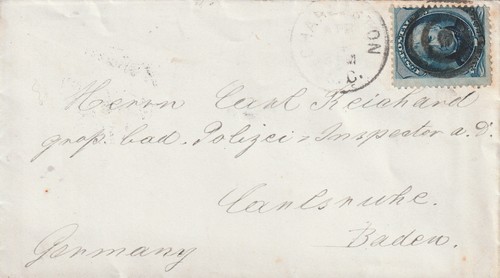 CHARLESTON
S.C.
Herrn Carl Reichard
groß. bad. Polizei-Inspector a. D.
Carlsruhe.
Baden.
Germany